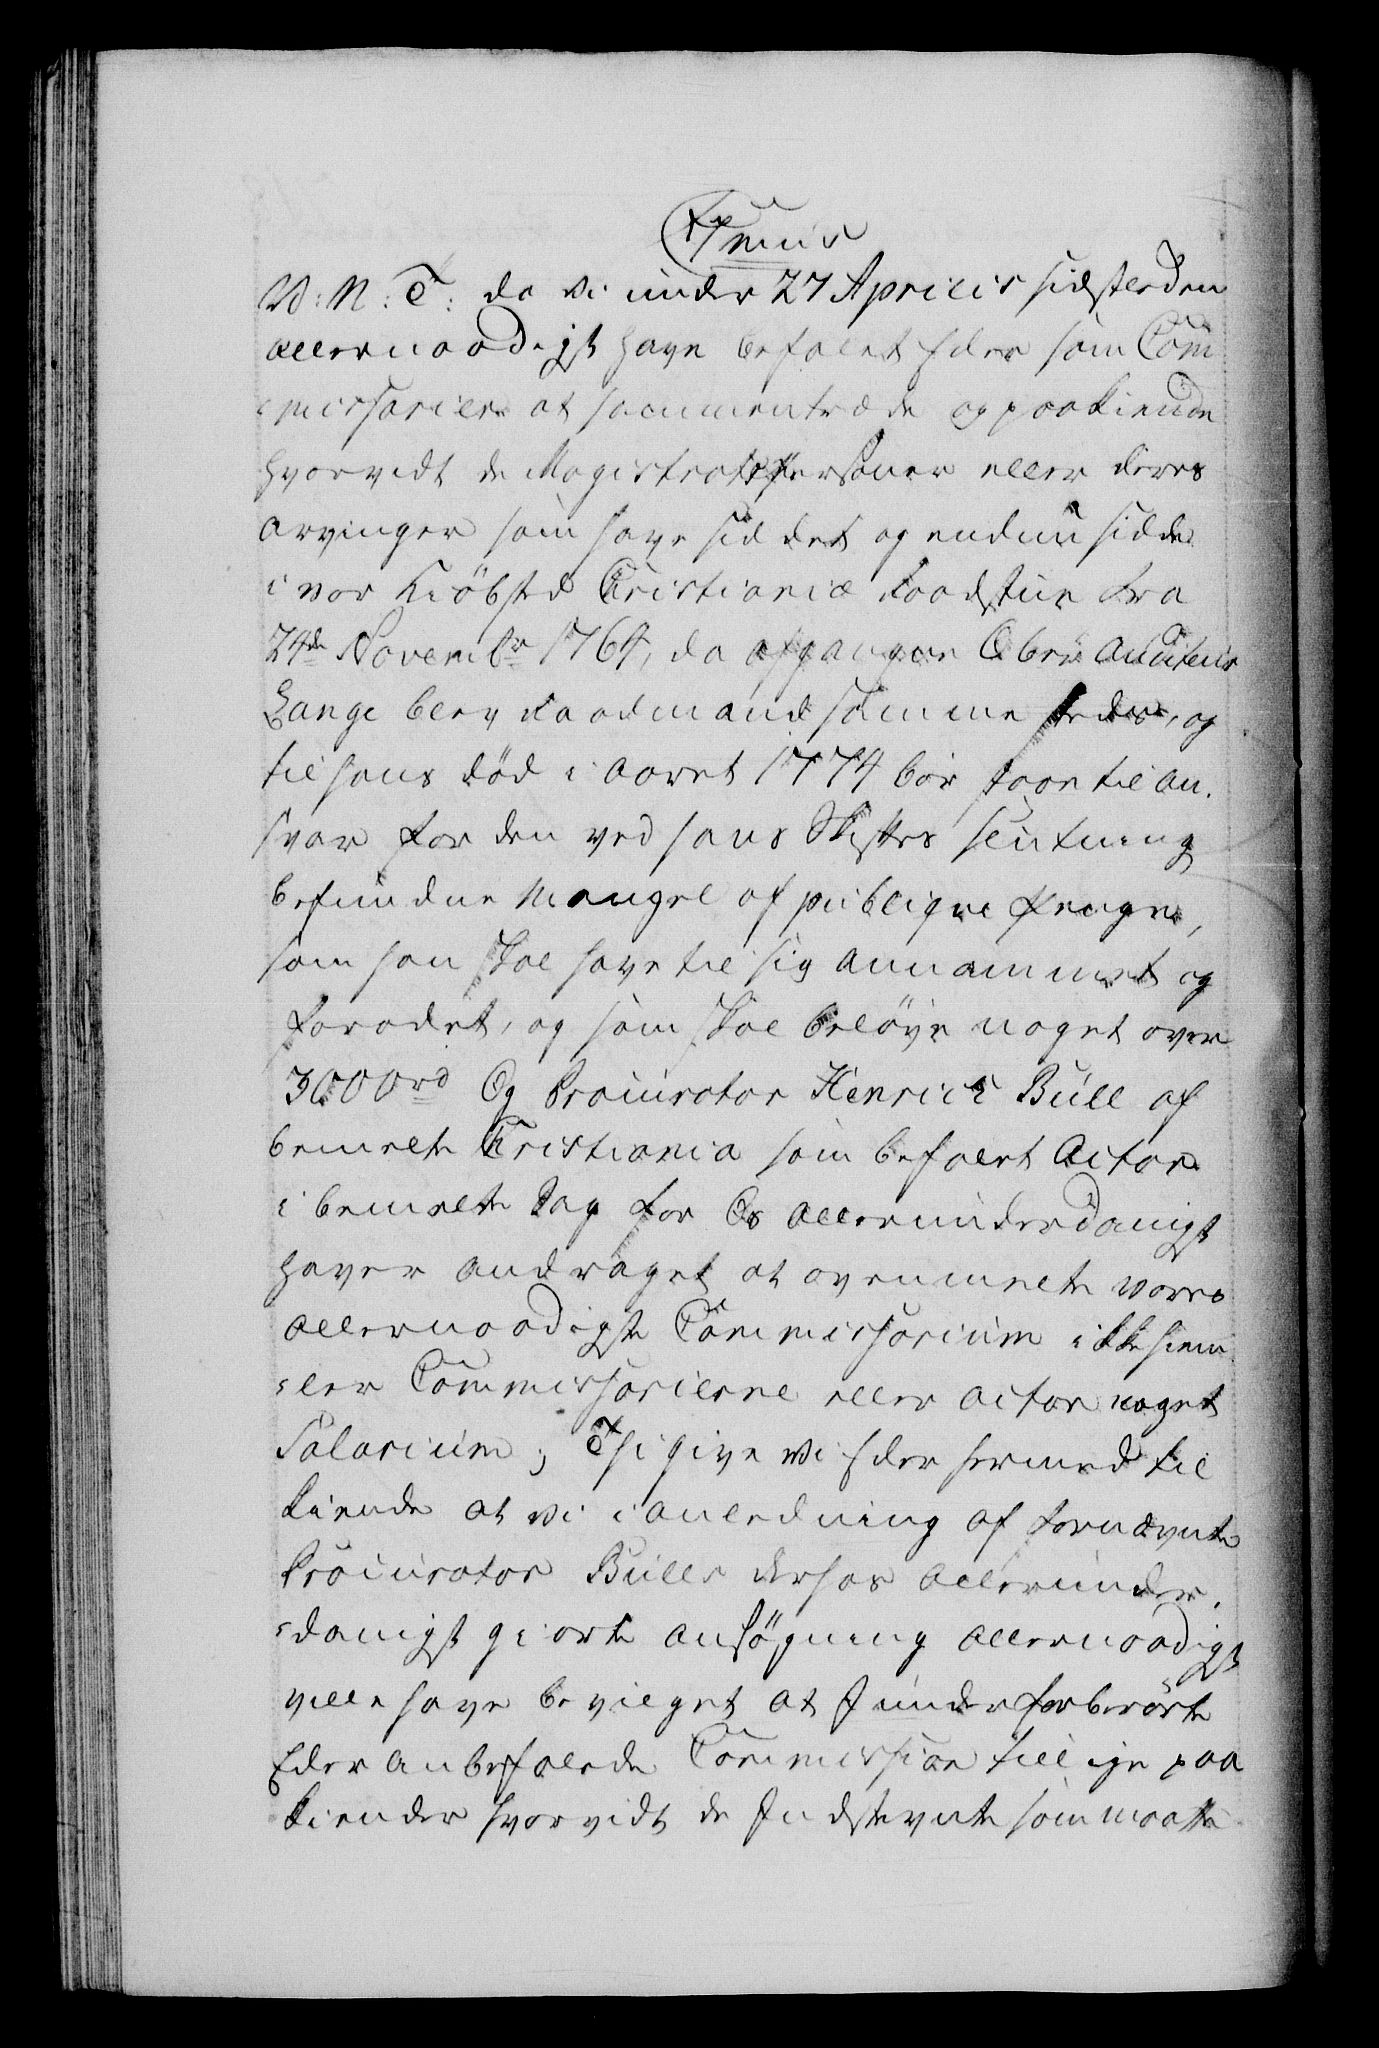 V: N: T: da Vi under 27 Aprilis sidstleden
allernaadigst have befalet Eder som Com¬
misсarier at sammentræde og paakiende
hvorvidt de Magistrats Personer eller deres
Arvinger som have siddet og endnu sidde
i vor Kiöbsted Christianiæ Raadstue fra
24de Novembr 1764, da afgangne Ober Auditeur
Lange blev Raadmand sammesteds, og
til hans Död i Aaret 1774 bör staae til An¬
svar for den ved hans Skiftes slutning
befundne Mangel af publique Penge,
som han skal have til sig annammet og
forödet, og som skal belöbe noget over
3000rd Og Procurator Henrich Bull af
bemelte Christiania som befalet Actor
i bemelte Sag for Os allerunderdanigst
haver andraget at ovenmelte vores
allernaadigste Commissorium ikke hiem¬
ler Commissarierne eller Actor noget
Salarium; Thi give Vi Eder hermed til¬
kiende at Vi i anledning af fornævnte
Procurator Bulls derhos allerunder¬
danigst giorte ansögning allernaadigst
ville have bevilget at I under forberörte
Eder anbefalede Commission tillige paa¬
kiender hvorvidt de Indstevnte som maatte